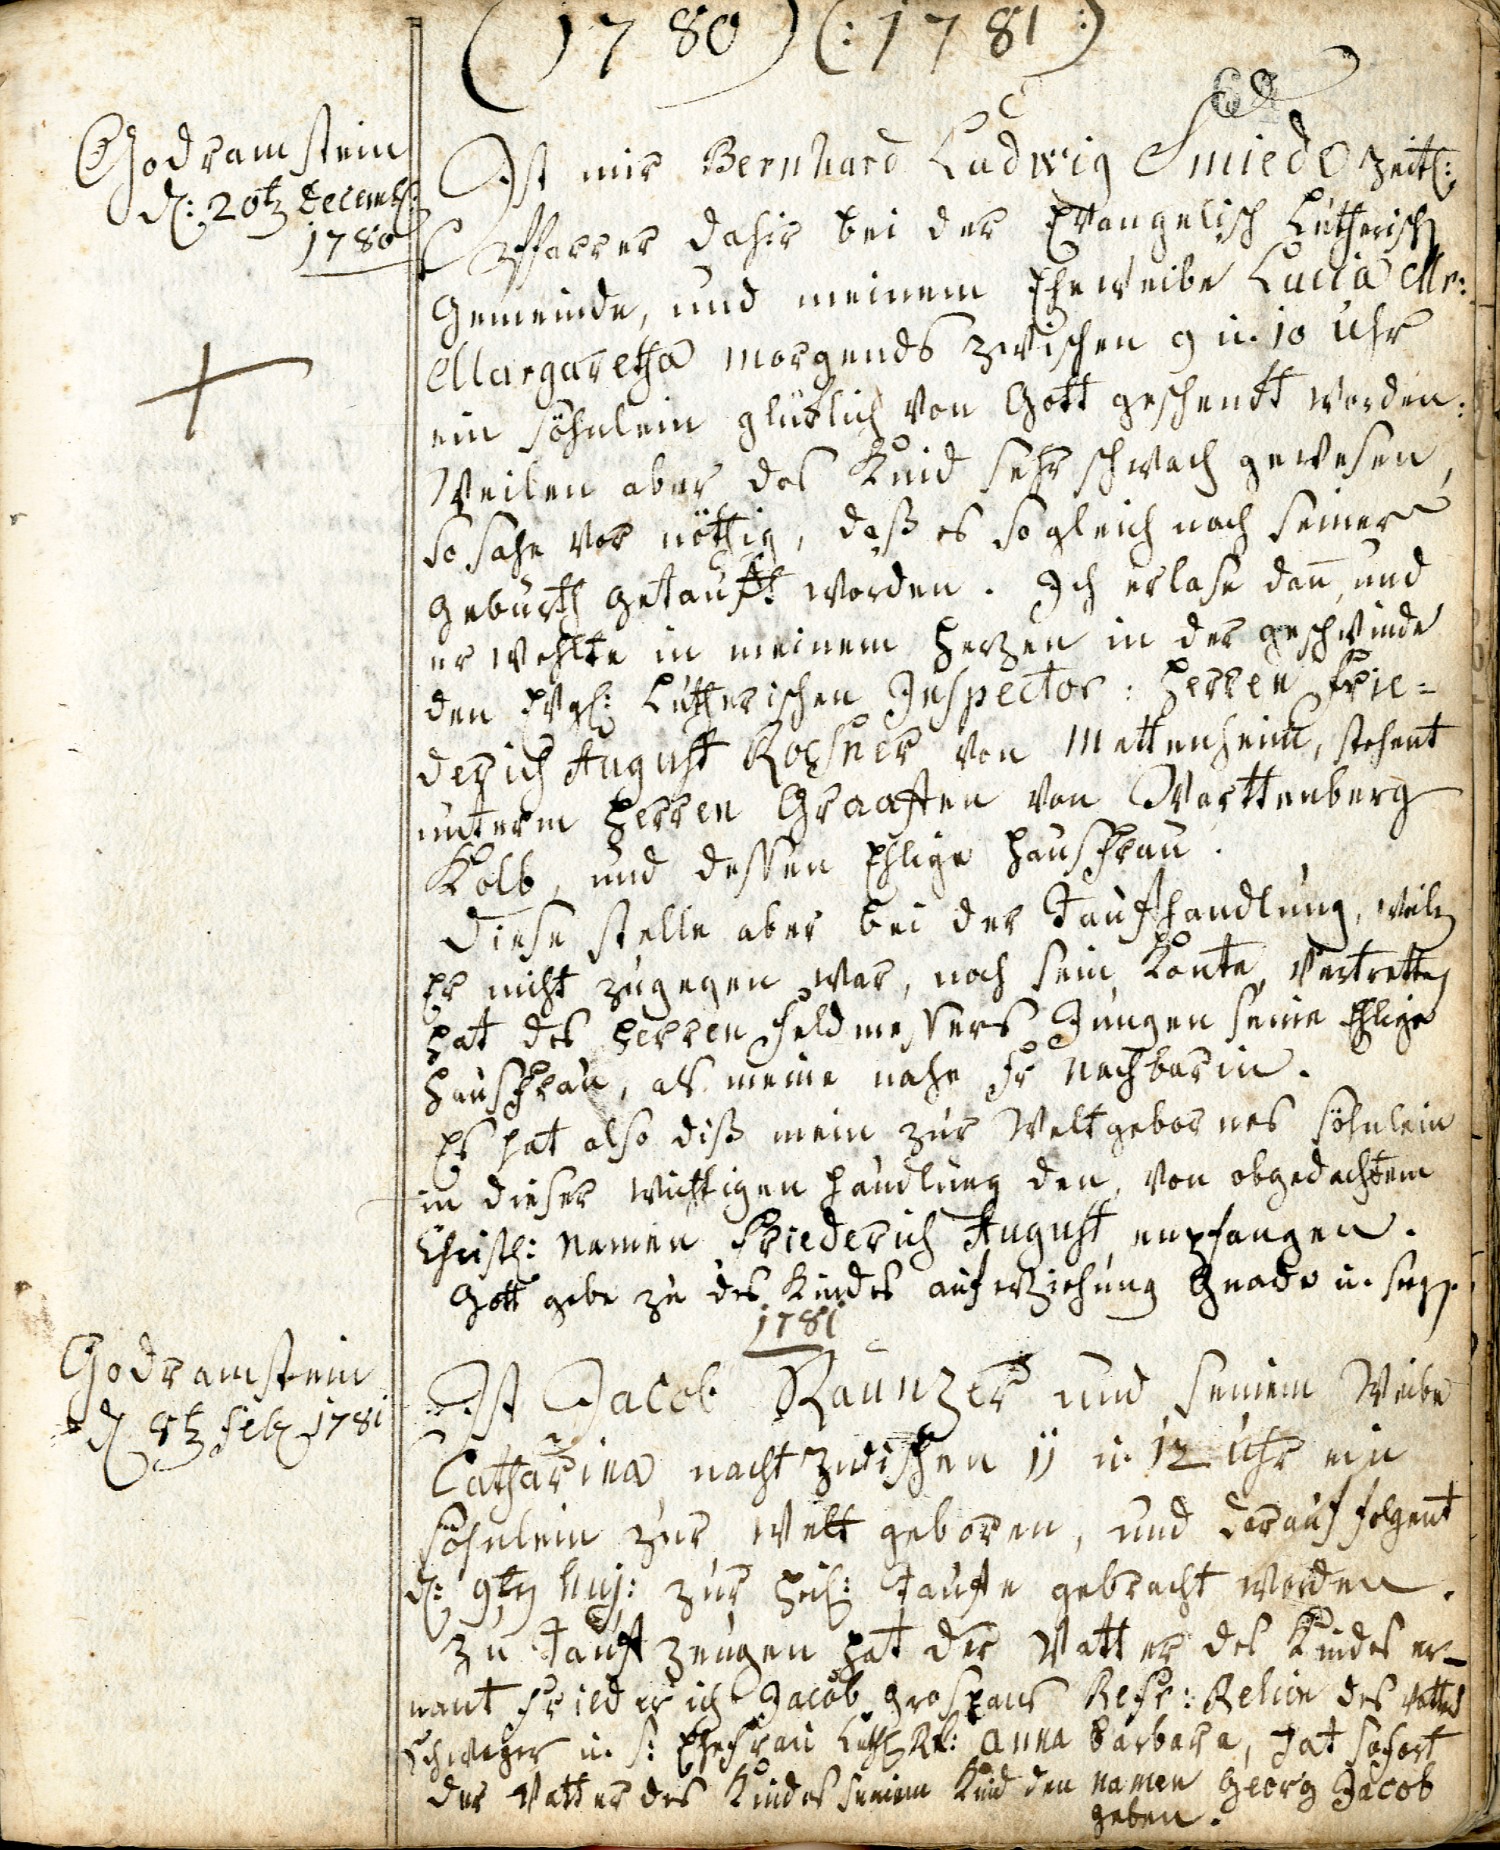 (1780) (:1781:)
Godramstein
d: 20tn Decemb:
1780
Ist mir Bernhard Ludwig Smiedo zeitl:
Pfarrer dahir bei der Evangelisch Lutherisch
Gemeinde, und meinem Eheweibe Lucia
Margaretha morgends zwischen 9 u. 10 Uhr
ein söhnlein glücklich von Gott geschenckt worden:
Weilen aber das Kind sehr schwach gewesen,
so sahe vor nöthig, daß es so gleich nach seiner
geburth getaufft worden. Ich erlase dañ, und
erwehlte in meinem Herzen in der geschwinde
den Evgl: Lutherischen Inspector: Herren Frie=
derich August von Mettenheim, stehent
unterm Herren Graafften von Warttenberg
Kolb, und dessen Ehlige Hausfrau.
Diese stelle aber bei der Taufhandlung, weiln
Er nicht zugegen war, noch sein Konte, vertretten
hat des Herren Feldmessers Jungen seine Ehlige
Hausfrau, als meine nahe Fr Nachbarin.
Es hat also diß mein zur Welt gebornes söhnlein
in dieser wichtigen handlung den, von obgedachtem
Christl: Namen Friederich August, empfangen.
Gott gebe zu des Kindes auferziehung Gnade u. seegen
1781
Godramstein
d 8tn Feb 1781
Ist Jacob Raunzer und seinem Weibe
Catharina nacht zwischen 11 u. 12 Uhr ein
söhnlein zur Welt geboren, und darauf folgent
d: 9tn huj: zur Heil: Tauffe gebracht worden.
Zu Tauffzeugen hat der Vatter des Kindes er-
nant Friederich Jacob Refr: Relion des Vatters
Schwager u. s: Ehefrau Luth Rel: Anna Barbara, hat sofort
der Vatter des Kindes seinem Kind den Namen Georg Jacob
geben.